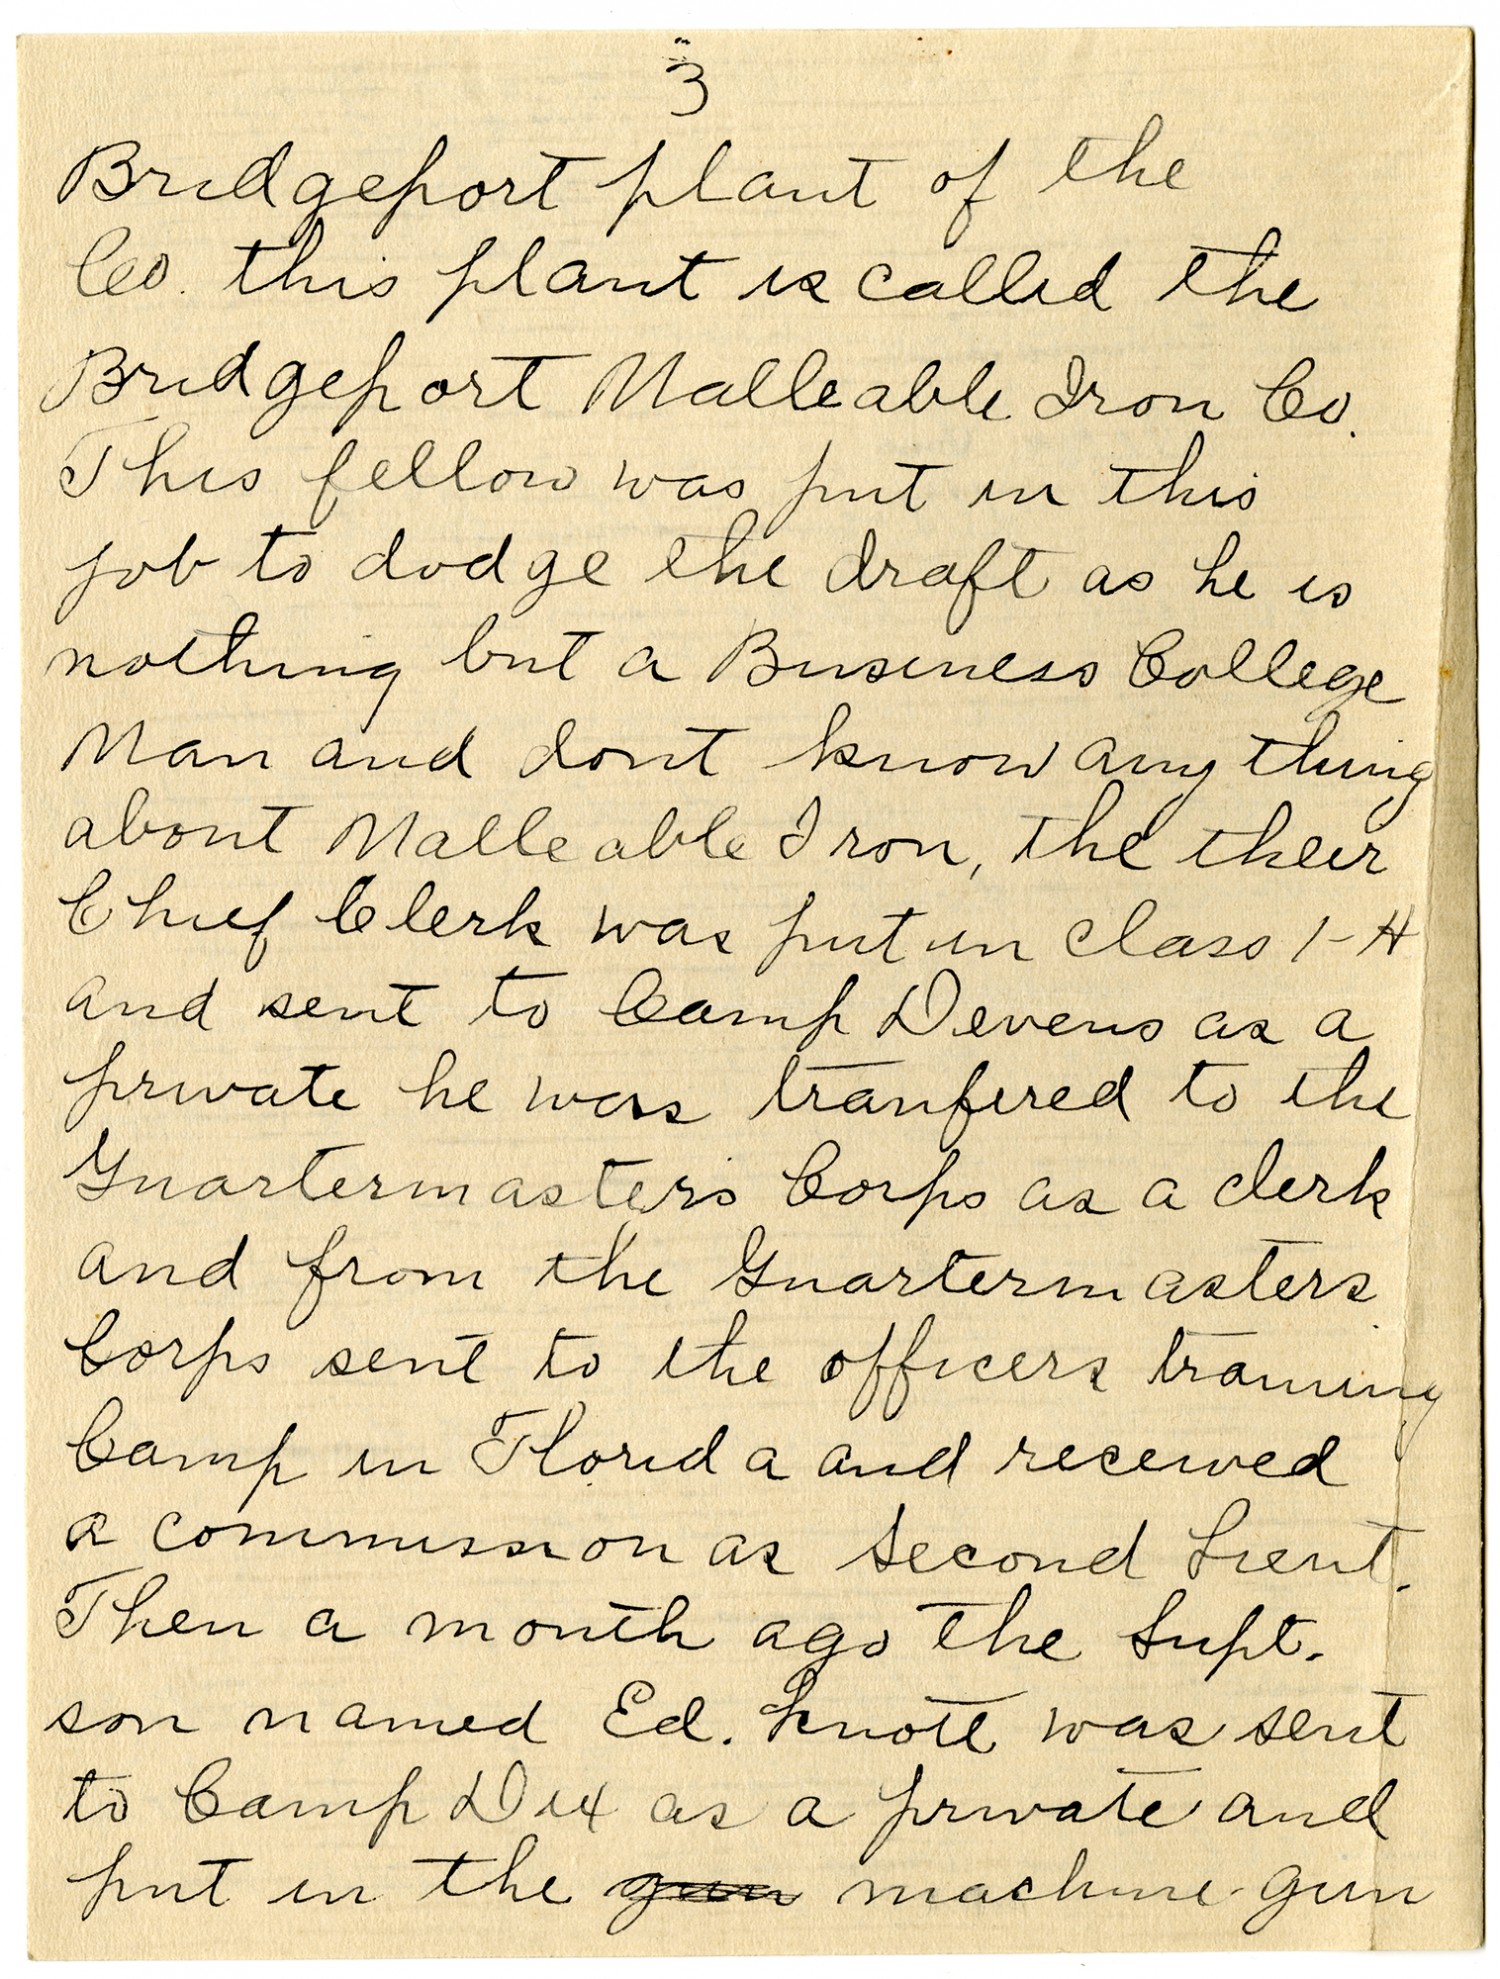 3
Bridgeport plant of the
Co. this plant is called the
Bridgeport Malleable Iron Co.
This fellow was put in this
job to dodge the draft as he is
nothing but a Business College
Man and dont know any thing
about Malleable Iron, the their
Chief Clerk was put in class 1-A
and sent to Camp Devens as a
private he was tranfered to the
Quartermasters Corps as a clerk
and from the Quartermasters
Corps sent to the officers training
Camp in Florida and received
a commission as Second Lieut.
Then a month ago the Supt.
son named Ed. Knott was sent
to Camp Dix as a private and
put in the gun machine gun